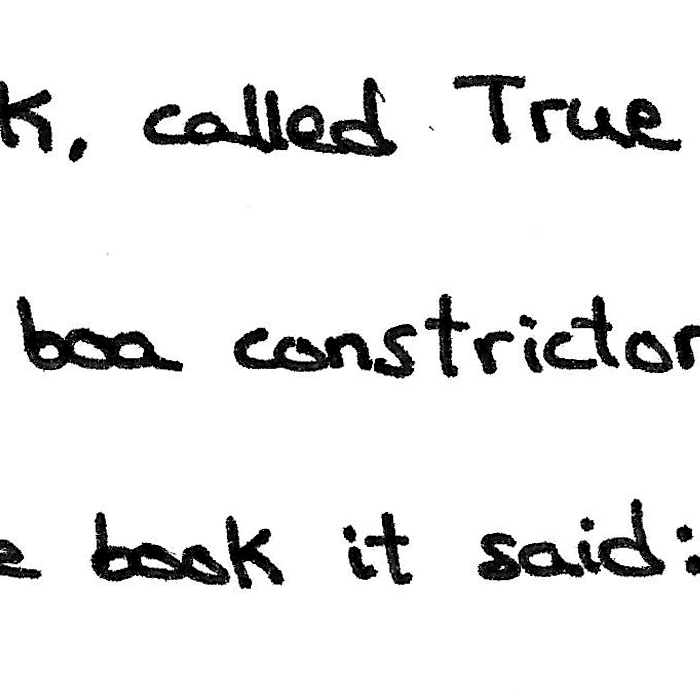 k, called True
boa constrictor
e book it said: